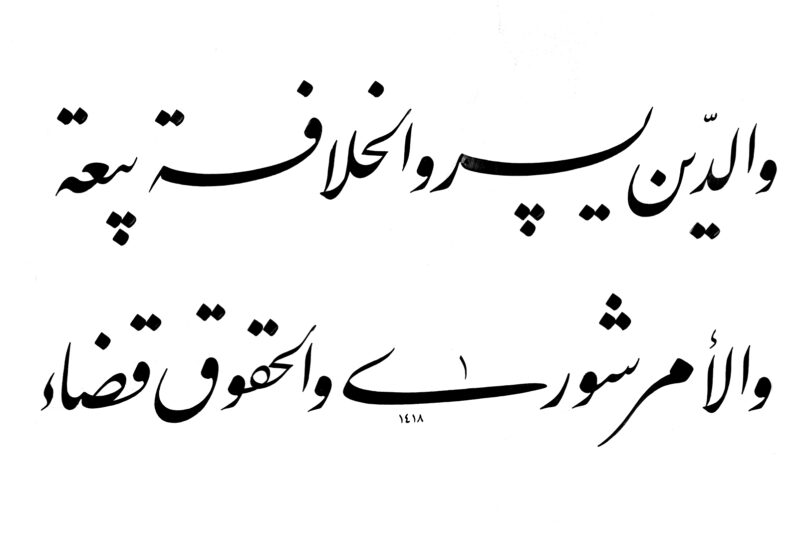 والدّين يسر والخلافة بيعة
والأمر شورى والحقوق قضاء
١٤١٨